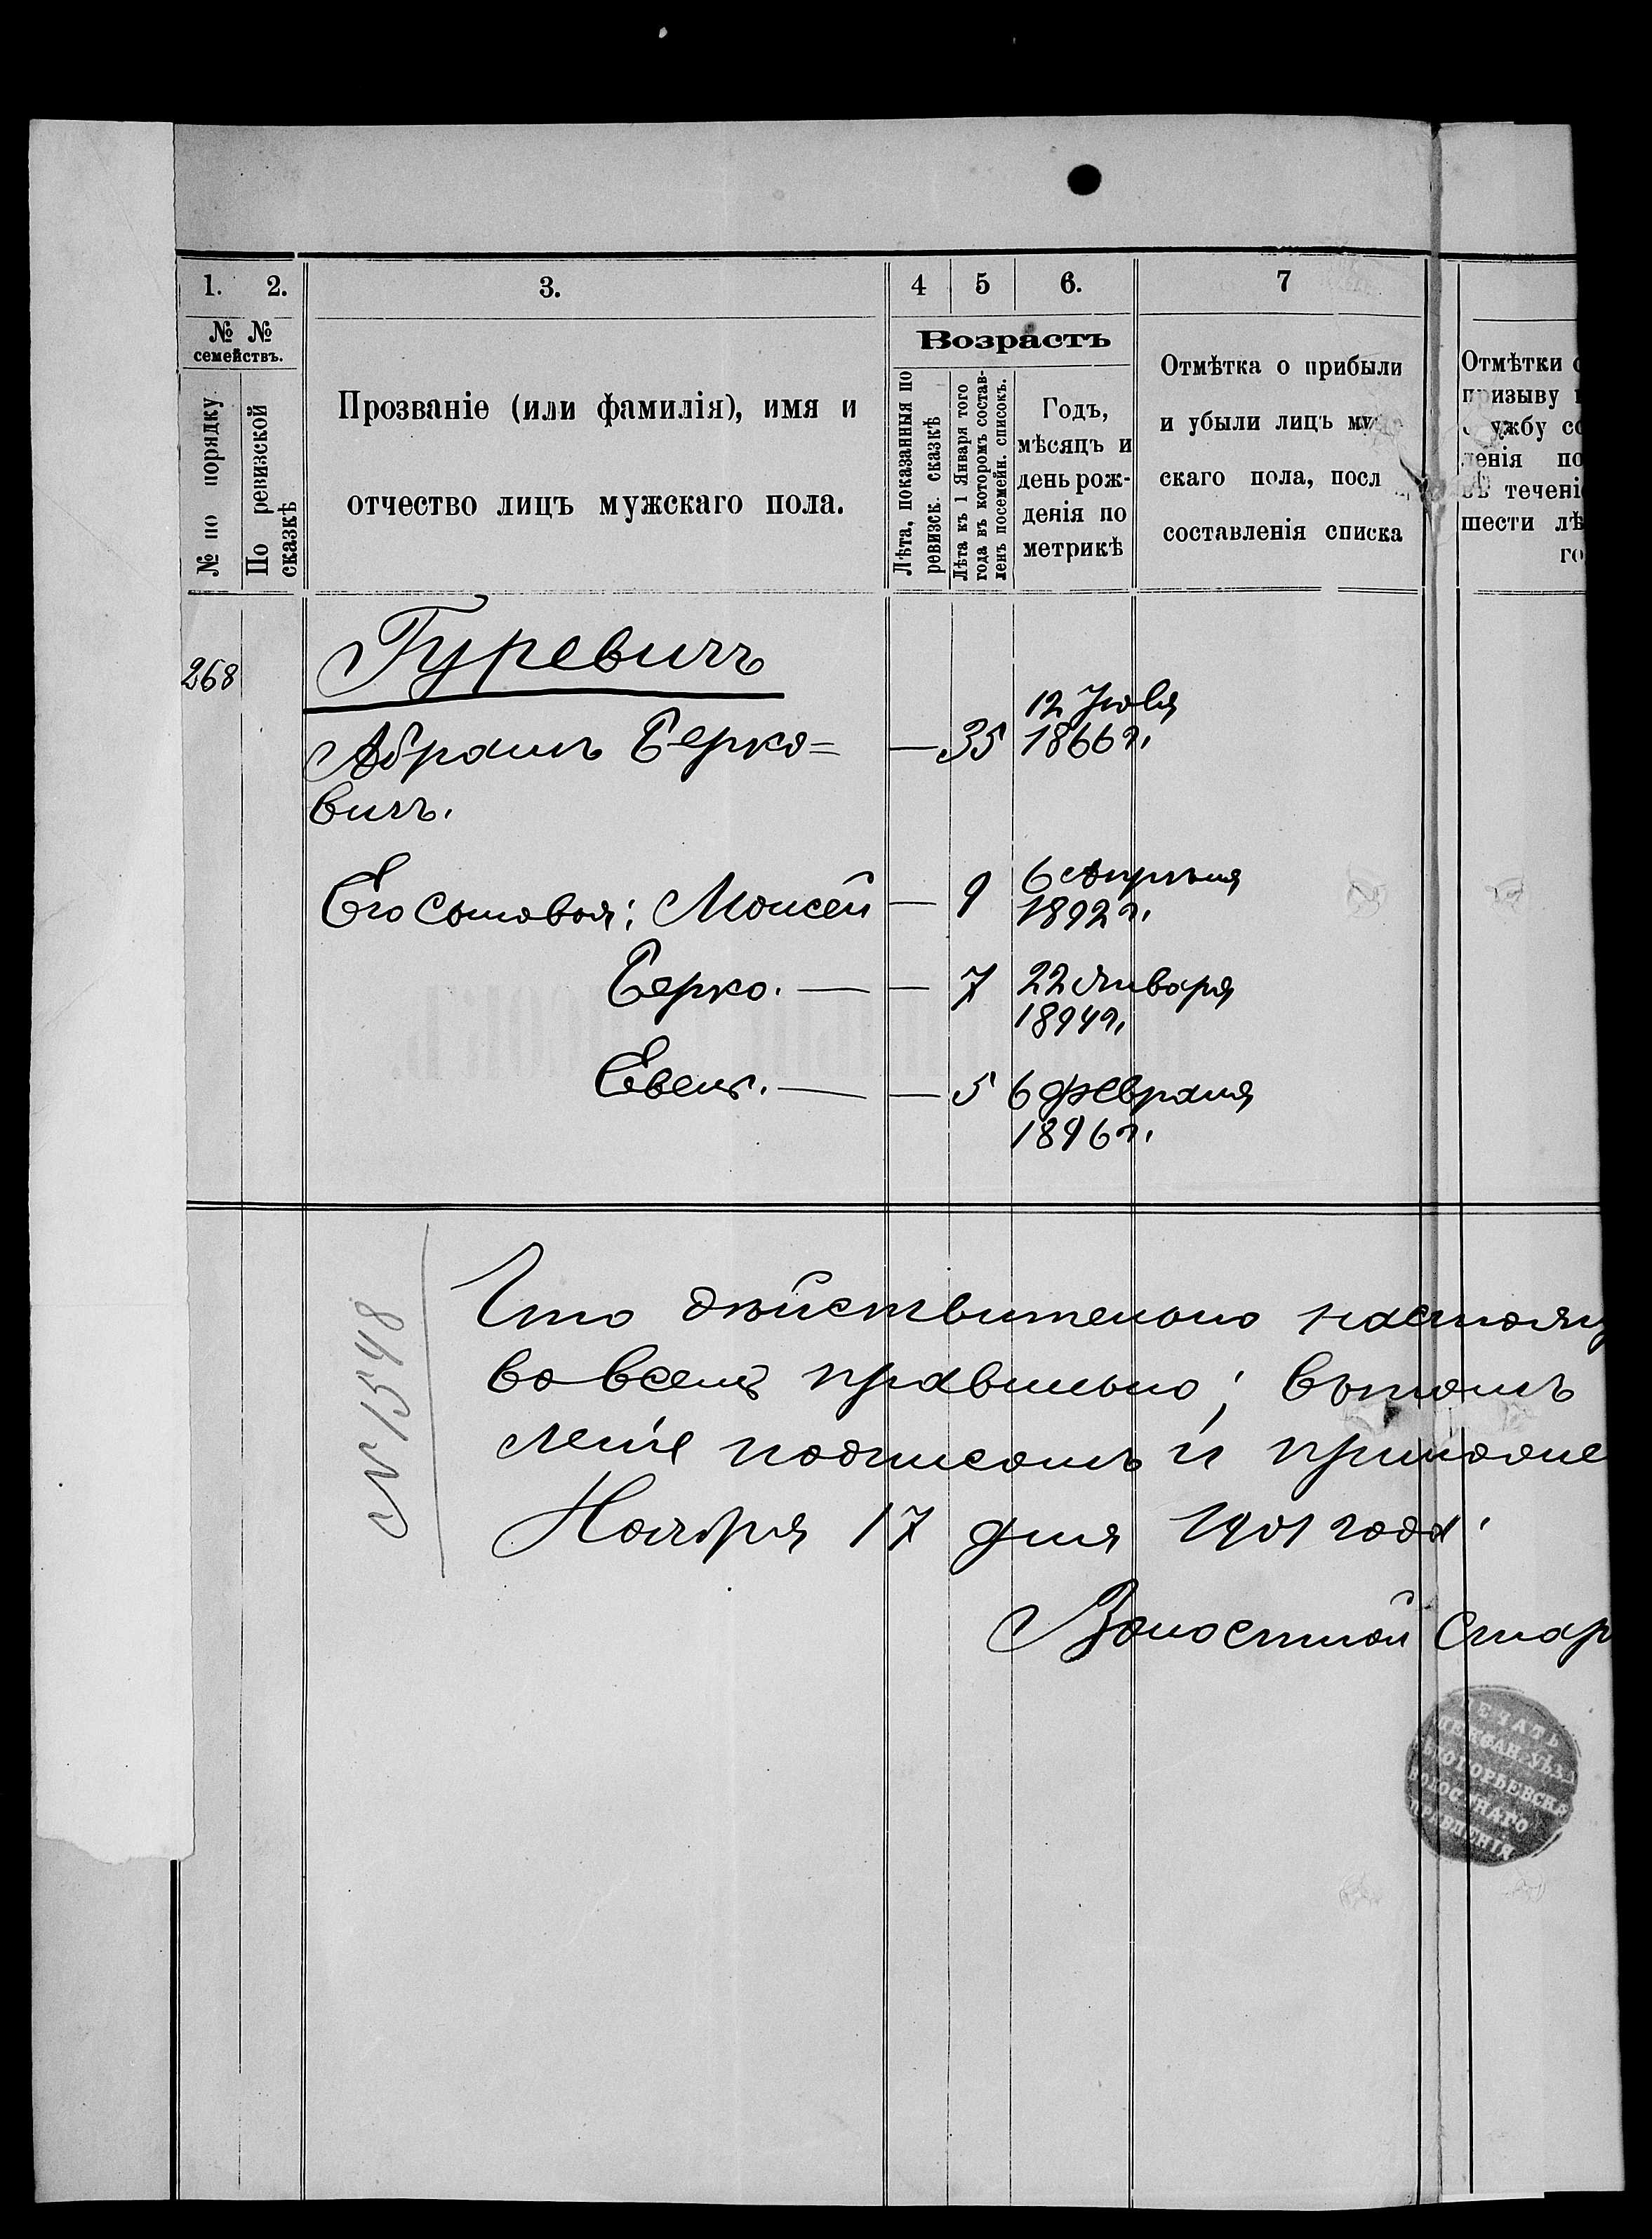 1. 2. 3. 4 5 6. 7
№ № семействъ.
№ по порядку
По ревизской сказкѣ
Прозваніе (или фамилія), имя и
отчество лицъ мужскаго пола.
Возрастъ
Лѣта, показанныя по
ревизск. сказкѣ
Лѣта къ 1 Января того
года въ которомъ состав-
ленъ посемейн. списокъ.
Годъ,
мѣсяцъ и
день рож-
денія по
метрикѣ
Отмѣтка о прибыли
и убыли лицъ му
скаго пола, посл
составленія списка
Отмѣтки
призыву
ужбу
ленія по
въ течені
шести лѣ
го
268
Гуревичъ
12 Іюля
Абрамъ Берко= — 35 1866 г.
вичъ.
Его сыновья: Моисей — 9 6 Апрѣля
1892 г.
Берко. — — 7 22 Января
1894 г.
Евель. — — 5 6 Февраля
1896 г.
№ 1548
Что дѣйствительно настоящ
во всемъ правильно; въ томъ
леніе подписомъ и приложе
Ноября 17 дня 1901 года.
Волостной Стар
ПЕЧАТЬ
ЛЕКСАН. УѢЗД
ВОЛОСТНАГО
ПРАВЛЕНІЯ